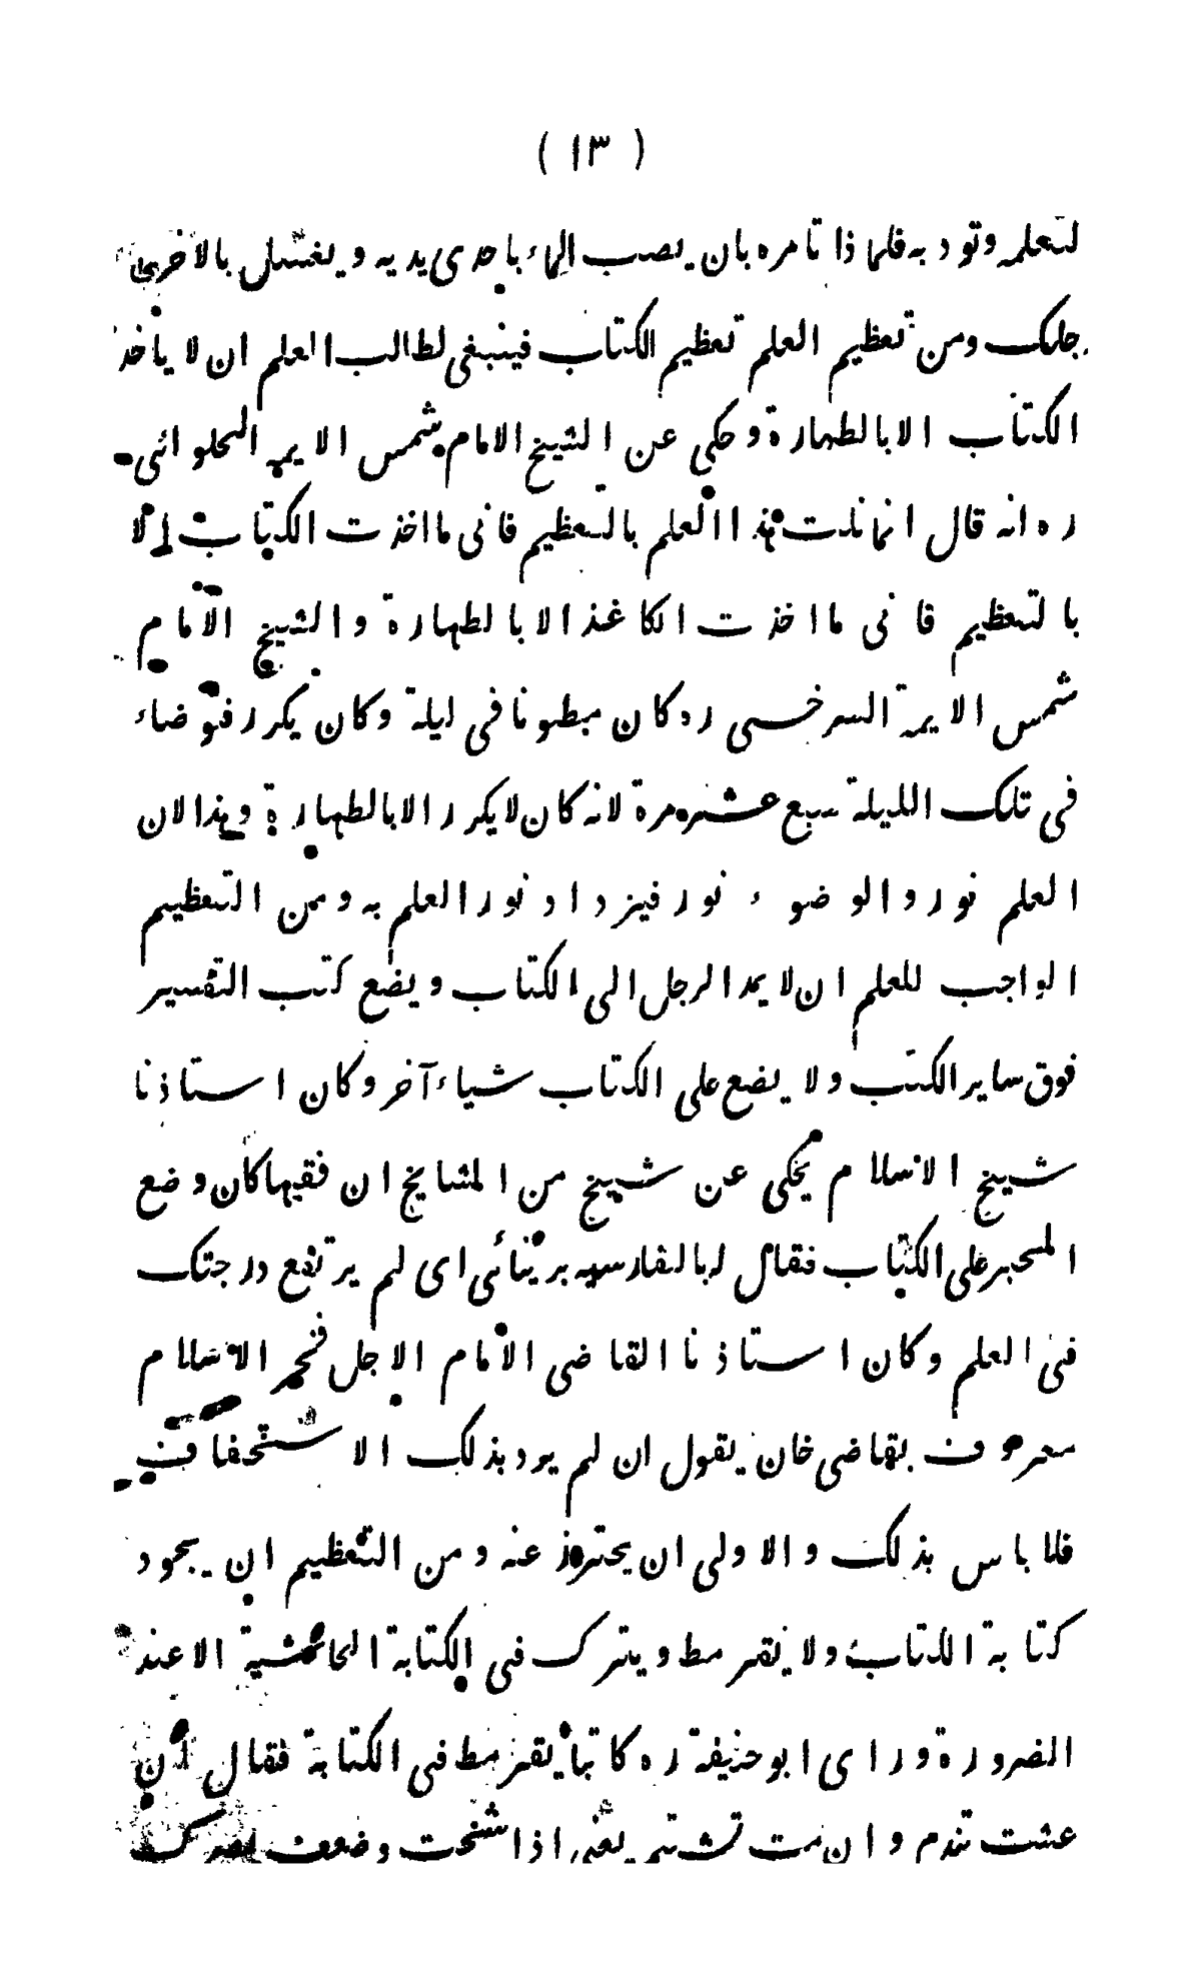 ( ١٣ )
لتعلمه وتودبه فلماذا تامره بان يصب الماء باحدى يديه ويغسل بالاخرى
رجلك ومن تعظيم العلم تعظيم الكتاب فينبغى لطالب العلم ان لا ياخذ
الكتاب الا بالطهارة وحكى عن الشيخ الامام شمس الايمه الحلوائى
ره انه قال انما نلت هذا العلم بالتعظيم فانى ما اخذت الكتاب الا
بالتعظيم فانى ما اخذت الكاغذ الا بالطهارة والشيخ الامام
شمس الايمة السرخسى ره كان مبطونا فى ليلة وكان يكرر فتوضاء
فى تلك الليلة سبع عشره مرة لانه كان لا يكرر الا بالطهارة وهذا لان
العلم نور والوضوء نور فيزداد نور العلم به ومن التعظيم
الواجب للعلم ان لا يمد الرجل الى الكتاب ويضع كتب التفسير
فوق ساير الكتب ولا يضع على الكتاب شياء آخر وكان استاذنا
شيخ الاسلام يحكى عن شيخ من المشايخ ان فقيها كان وضع
المحبر على الكتاب فقال له بالفارسيه برنيائى اى لم يرتفع درجتك
فى العلم وكان استاذنا القاضى الامام الاجل فخر الاسلام
معروف بقاضى خان يقول ان لم يرد بذلك الاستخفاف
فلا باس بذلك والاولى ان يحترز عنه ومن التعظيم ان يجود
كتابة الكتاب ولا يقرمط ويترك فى الكتابة الحاشية الا عند
الضرورة وراى ابو حنيفة ره كاتبا يقرمط فى الكتابة فقال ان
عشت تندم وان مت تشتم يعنى اذا شخت وضعف بصرك